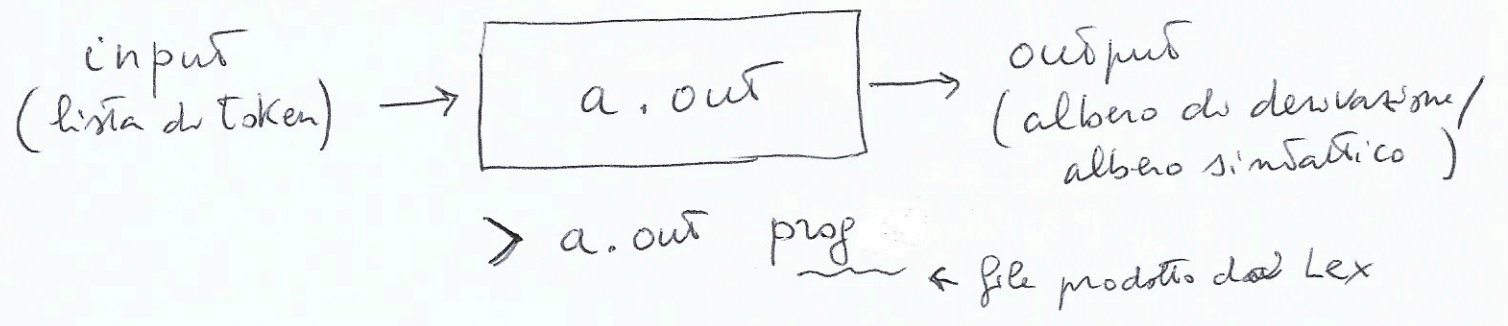 input
(lista di token)
a.out
output
(albero di derivazione/
albero sintattico)
> a.out prog
← file prodotto da Lex